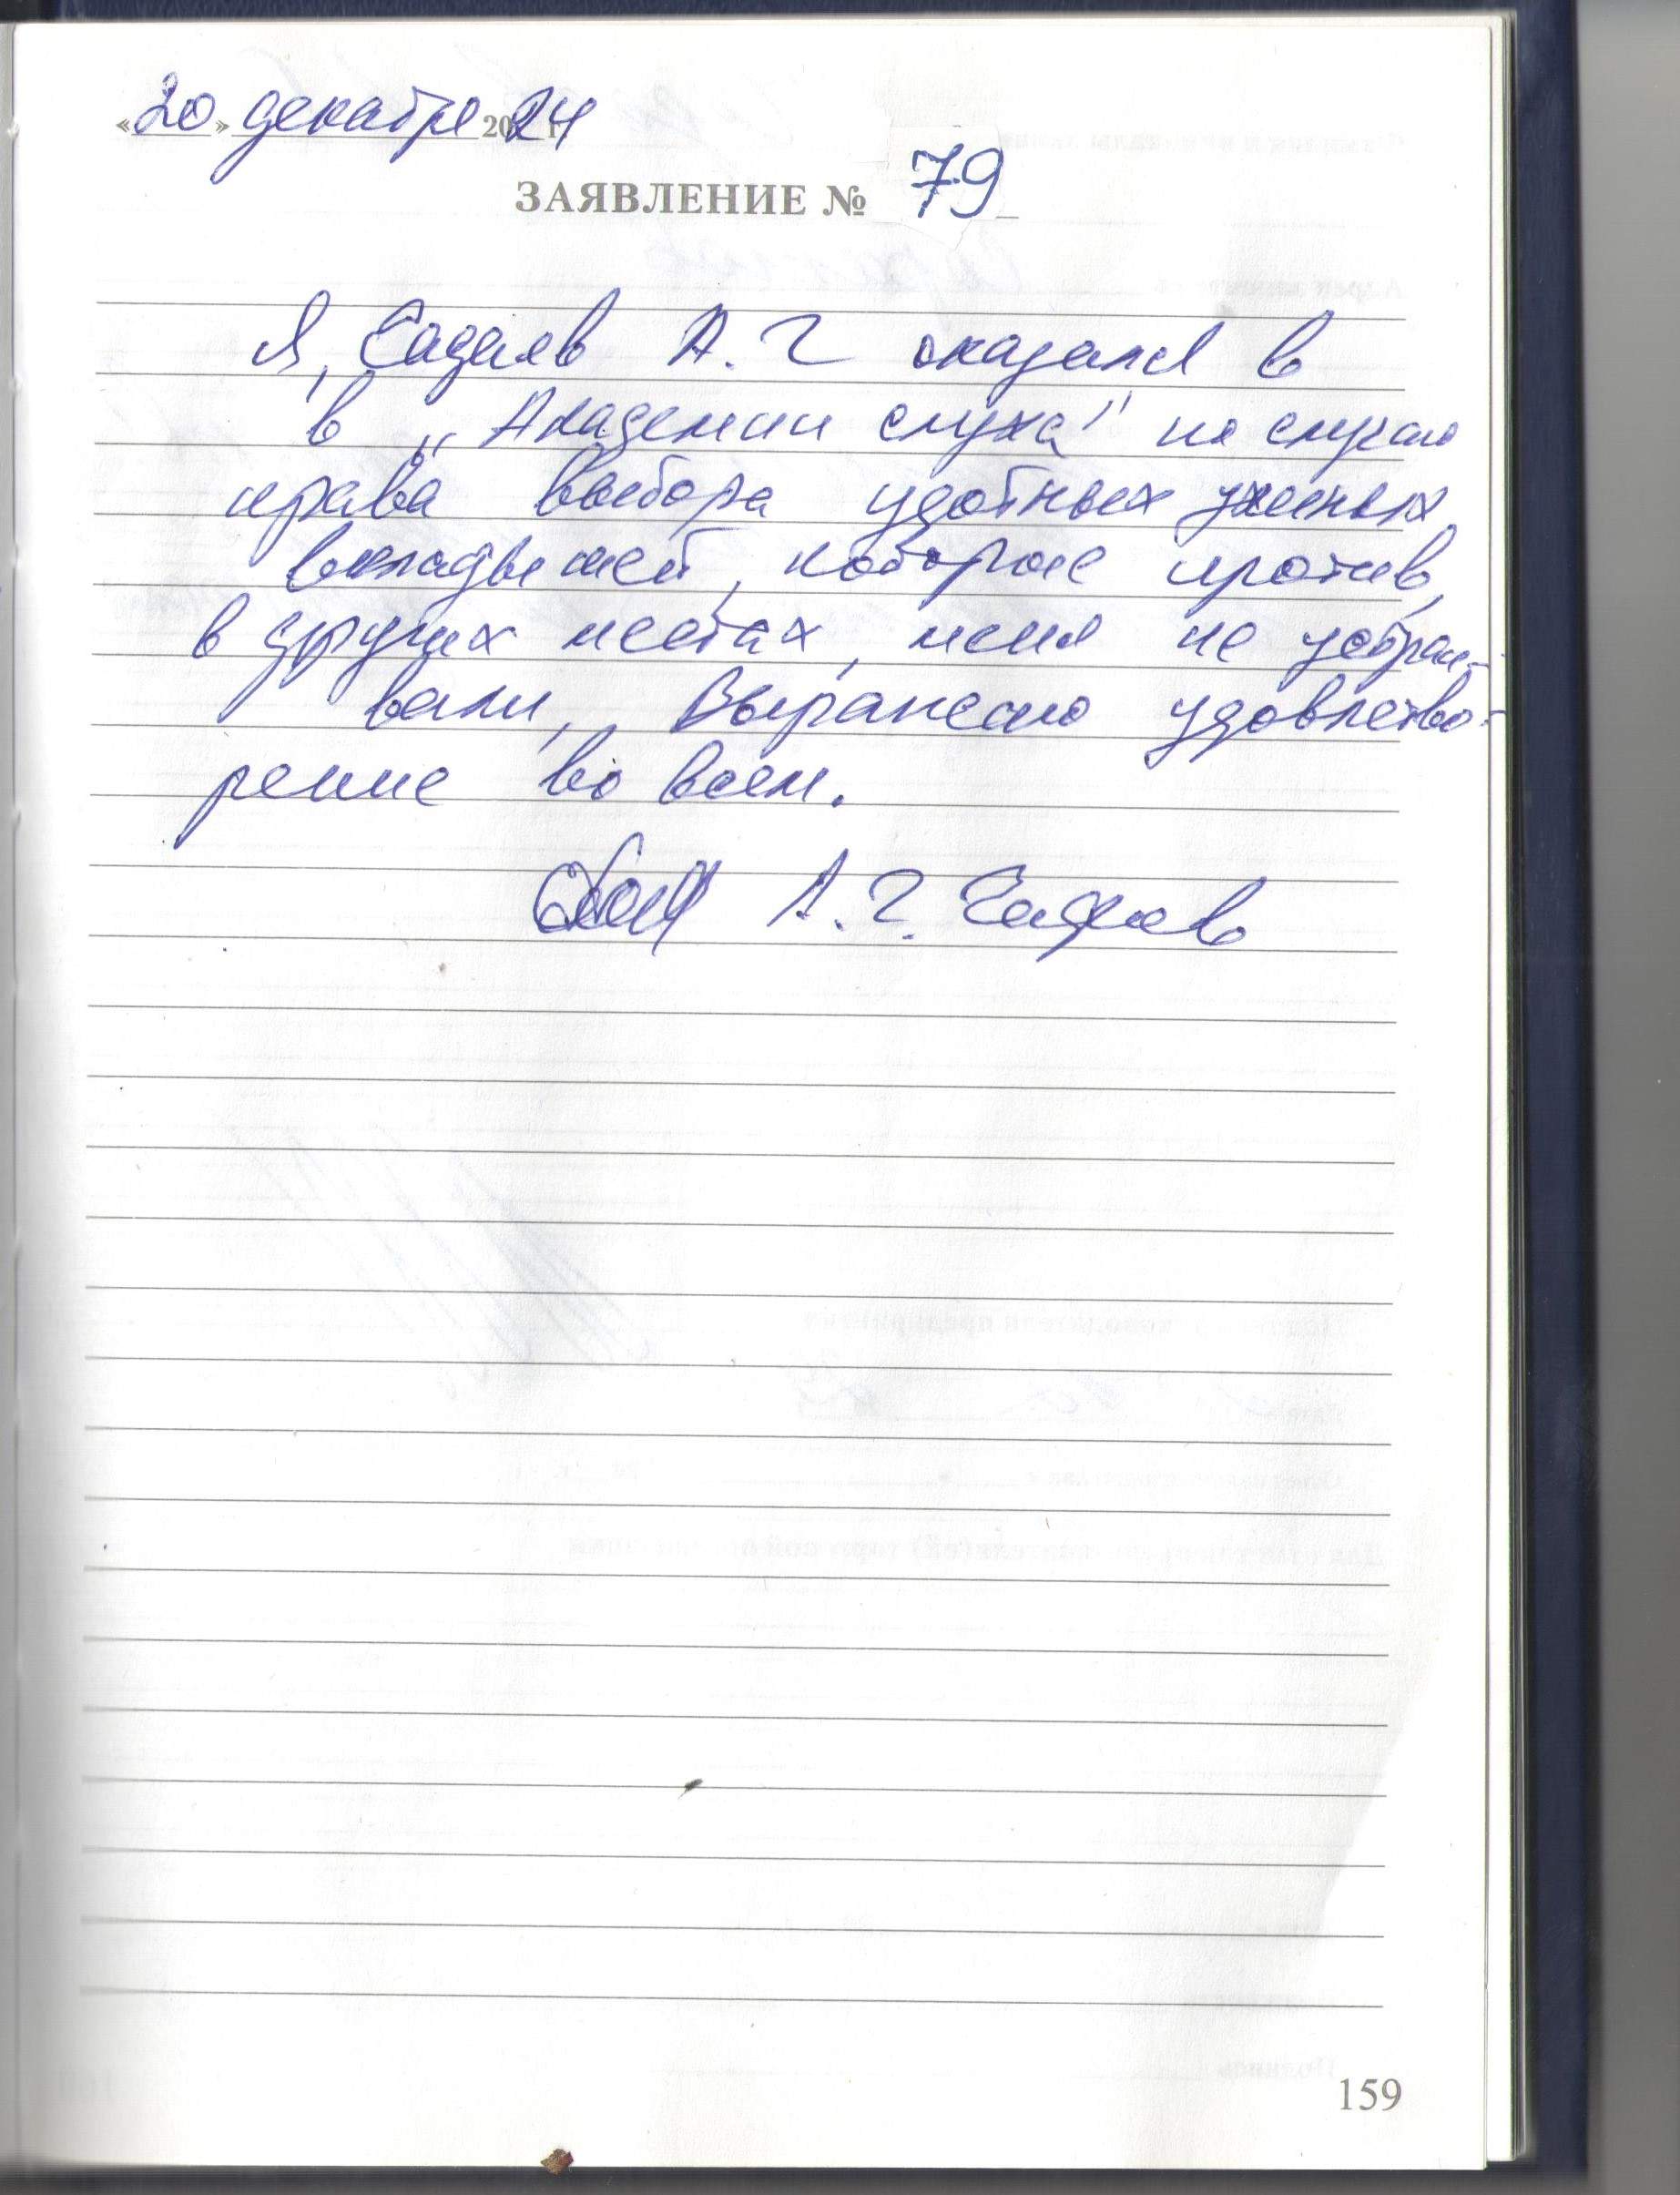 «20» декабря 2024
ЗАЯВЛЕНИЕ № 79
Я, Садаев А. Г оказался в
в „Академии слуха" по случаю
права выбора удобных ушных
вкладышей, которые против,
в других местах, меня не устраи-
вали, Выражаю удовлетво-
рение во всем.
А. Г.
159